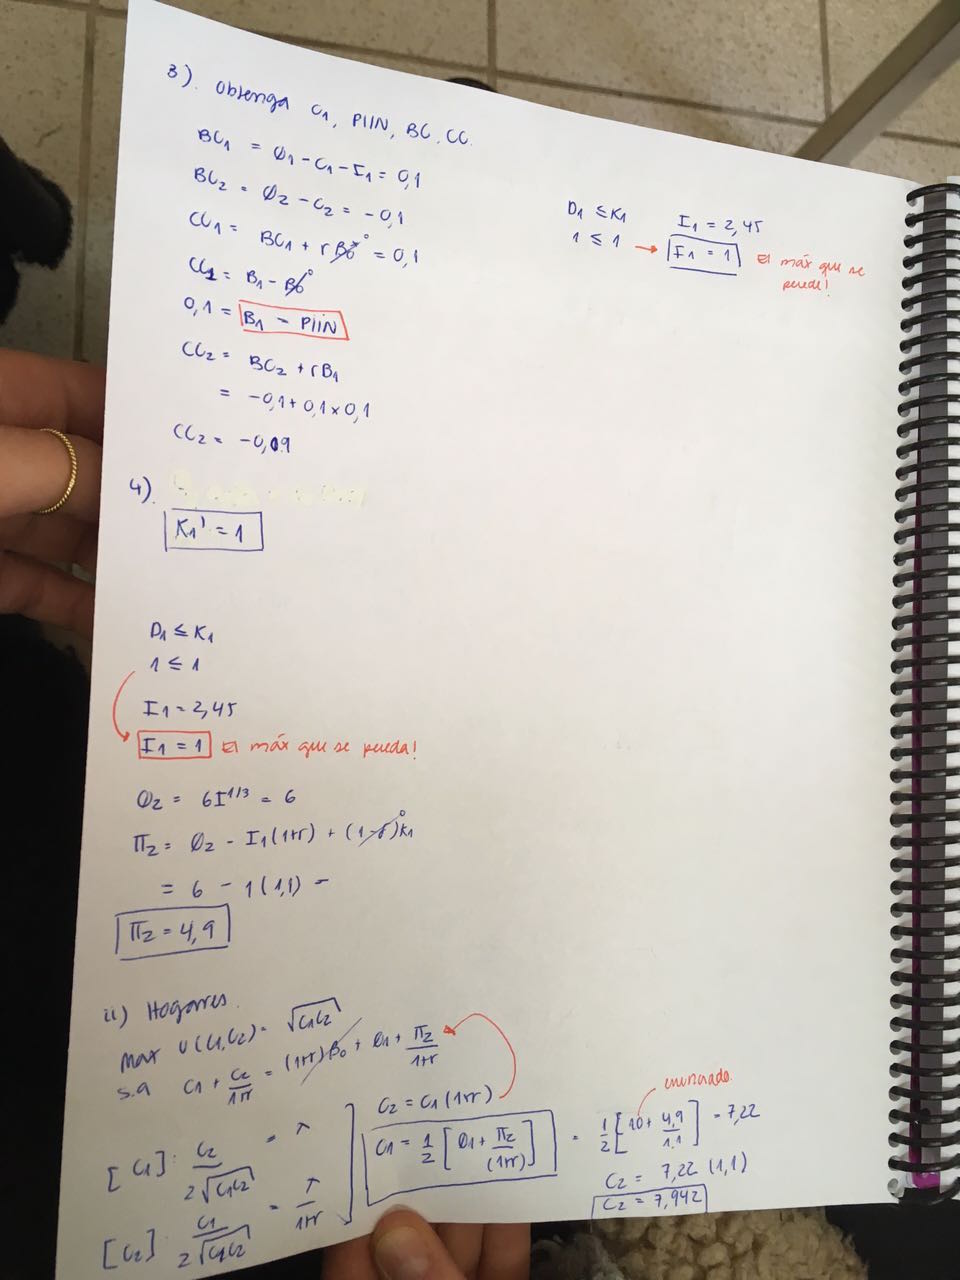 3). Obtenga C1, PIIN, BC, CC.
BC1 = Q1 - C1 - I1 = 0,1
BC2 = Q2 - C2 = -0,1
CC1 = BC1 + rB0* 0 = 0,1
CC1 = B1 - B0 0
0,1 = B1 - PIIN
CC2 = BC2 + rB1
= -0,1 + 0,1 x 0,1
CC2 = -0,09
D1 ≤ K1
1 ≤ 1 → I1 = 1 El máx que se puede!
I1 = 2,45
4).
K1' = 1
D1 ≤ K1
1 ≤ 1
I1 = 2,45
I1 = 1 El máx que se pueda!
Q2 = 6I^1/3 = 6
Π2 = Q2 - I1(1+r) + (1-δ)K1 0
= 6 - 1(1,1) -
Π2 = 4,9
ii) Hogares.
Max U(C1,C2) = √C1C2
s.a C1 + C2/1+r = (1+r)B0 + Q1 + Π2/1+r
[C1]: C2/2√C1C2 = λ
[C2]: C1/2√C1C2 = λ/1+r
C2 = C1(1+r)
C1 = 1/2 [Q1 + Π2/(1+r)] = 1/2 [10 + 4,9/1,1] = 7,22
enunciado.
C2 = 7,22 (1,1)
C2 = 7,942